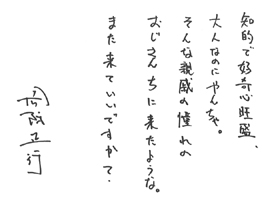 知的で好奇心旺盛、
大人なのにやんちゃ。
そんな親戚の憧れの
おじさんちに来たような。
また来ていいですか？